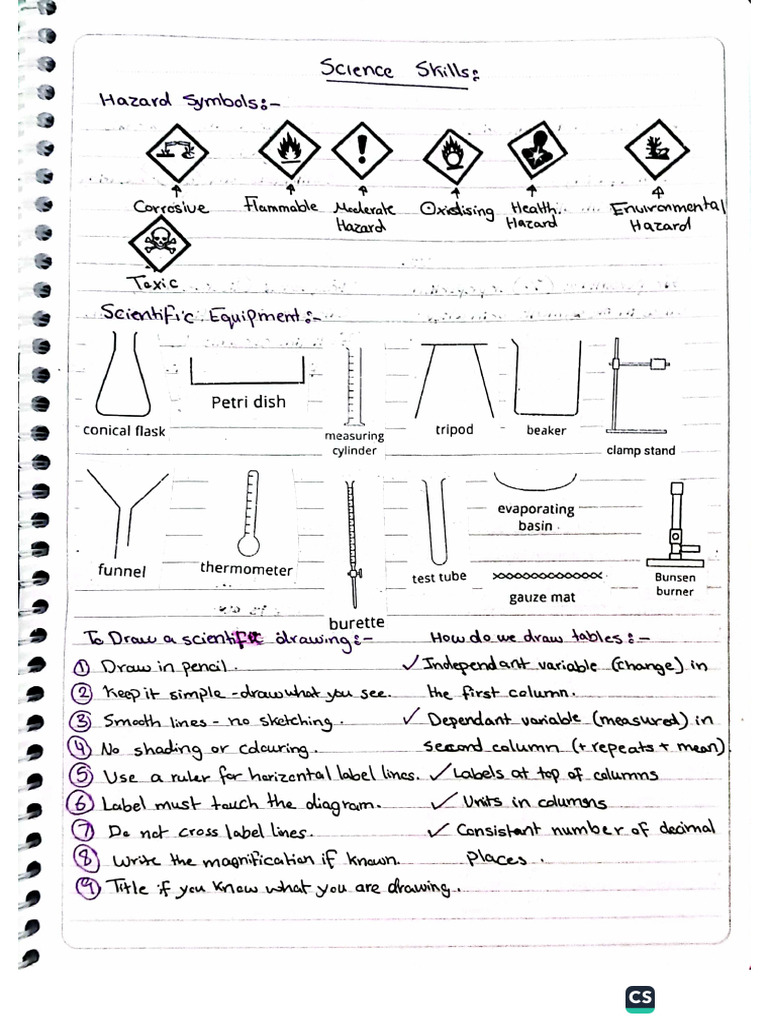 Science Skills:
Hazard Symbols:-
Corrosive Flammable Moderate Hazard Oxidising Health Hazard Environmental Hazard
Toxic
Scientific Equipment:-
conical flask Petri dish measuring cylinder tripod beaker clamp stand
funnel thermometer burette test tube evaporating basin gauze mat Bunsen burner
To Draw a scientific drawing:-
① Draw in pencil.
② Keep it simple - draw what you see.
③ Smooth lines - no sketching.
④ No shading or colouring.
⑤ Use a ruler for horizontal label lines.
⑥ Label must touch the diagram.
⑦ Do not cross label lines.
⑧ Write the magnification if known.
⑨ Title if you know what you are drawing.
How do we draw tables:-
✓ Independant variable (change) in
the first column.
✓ Dependant variable (measured) in
second column (+ repeats + mean)
✓ Labels at top of columns
✓ Units in columns
✓ Consistant number of decimal
places.
CS